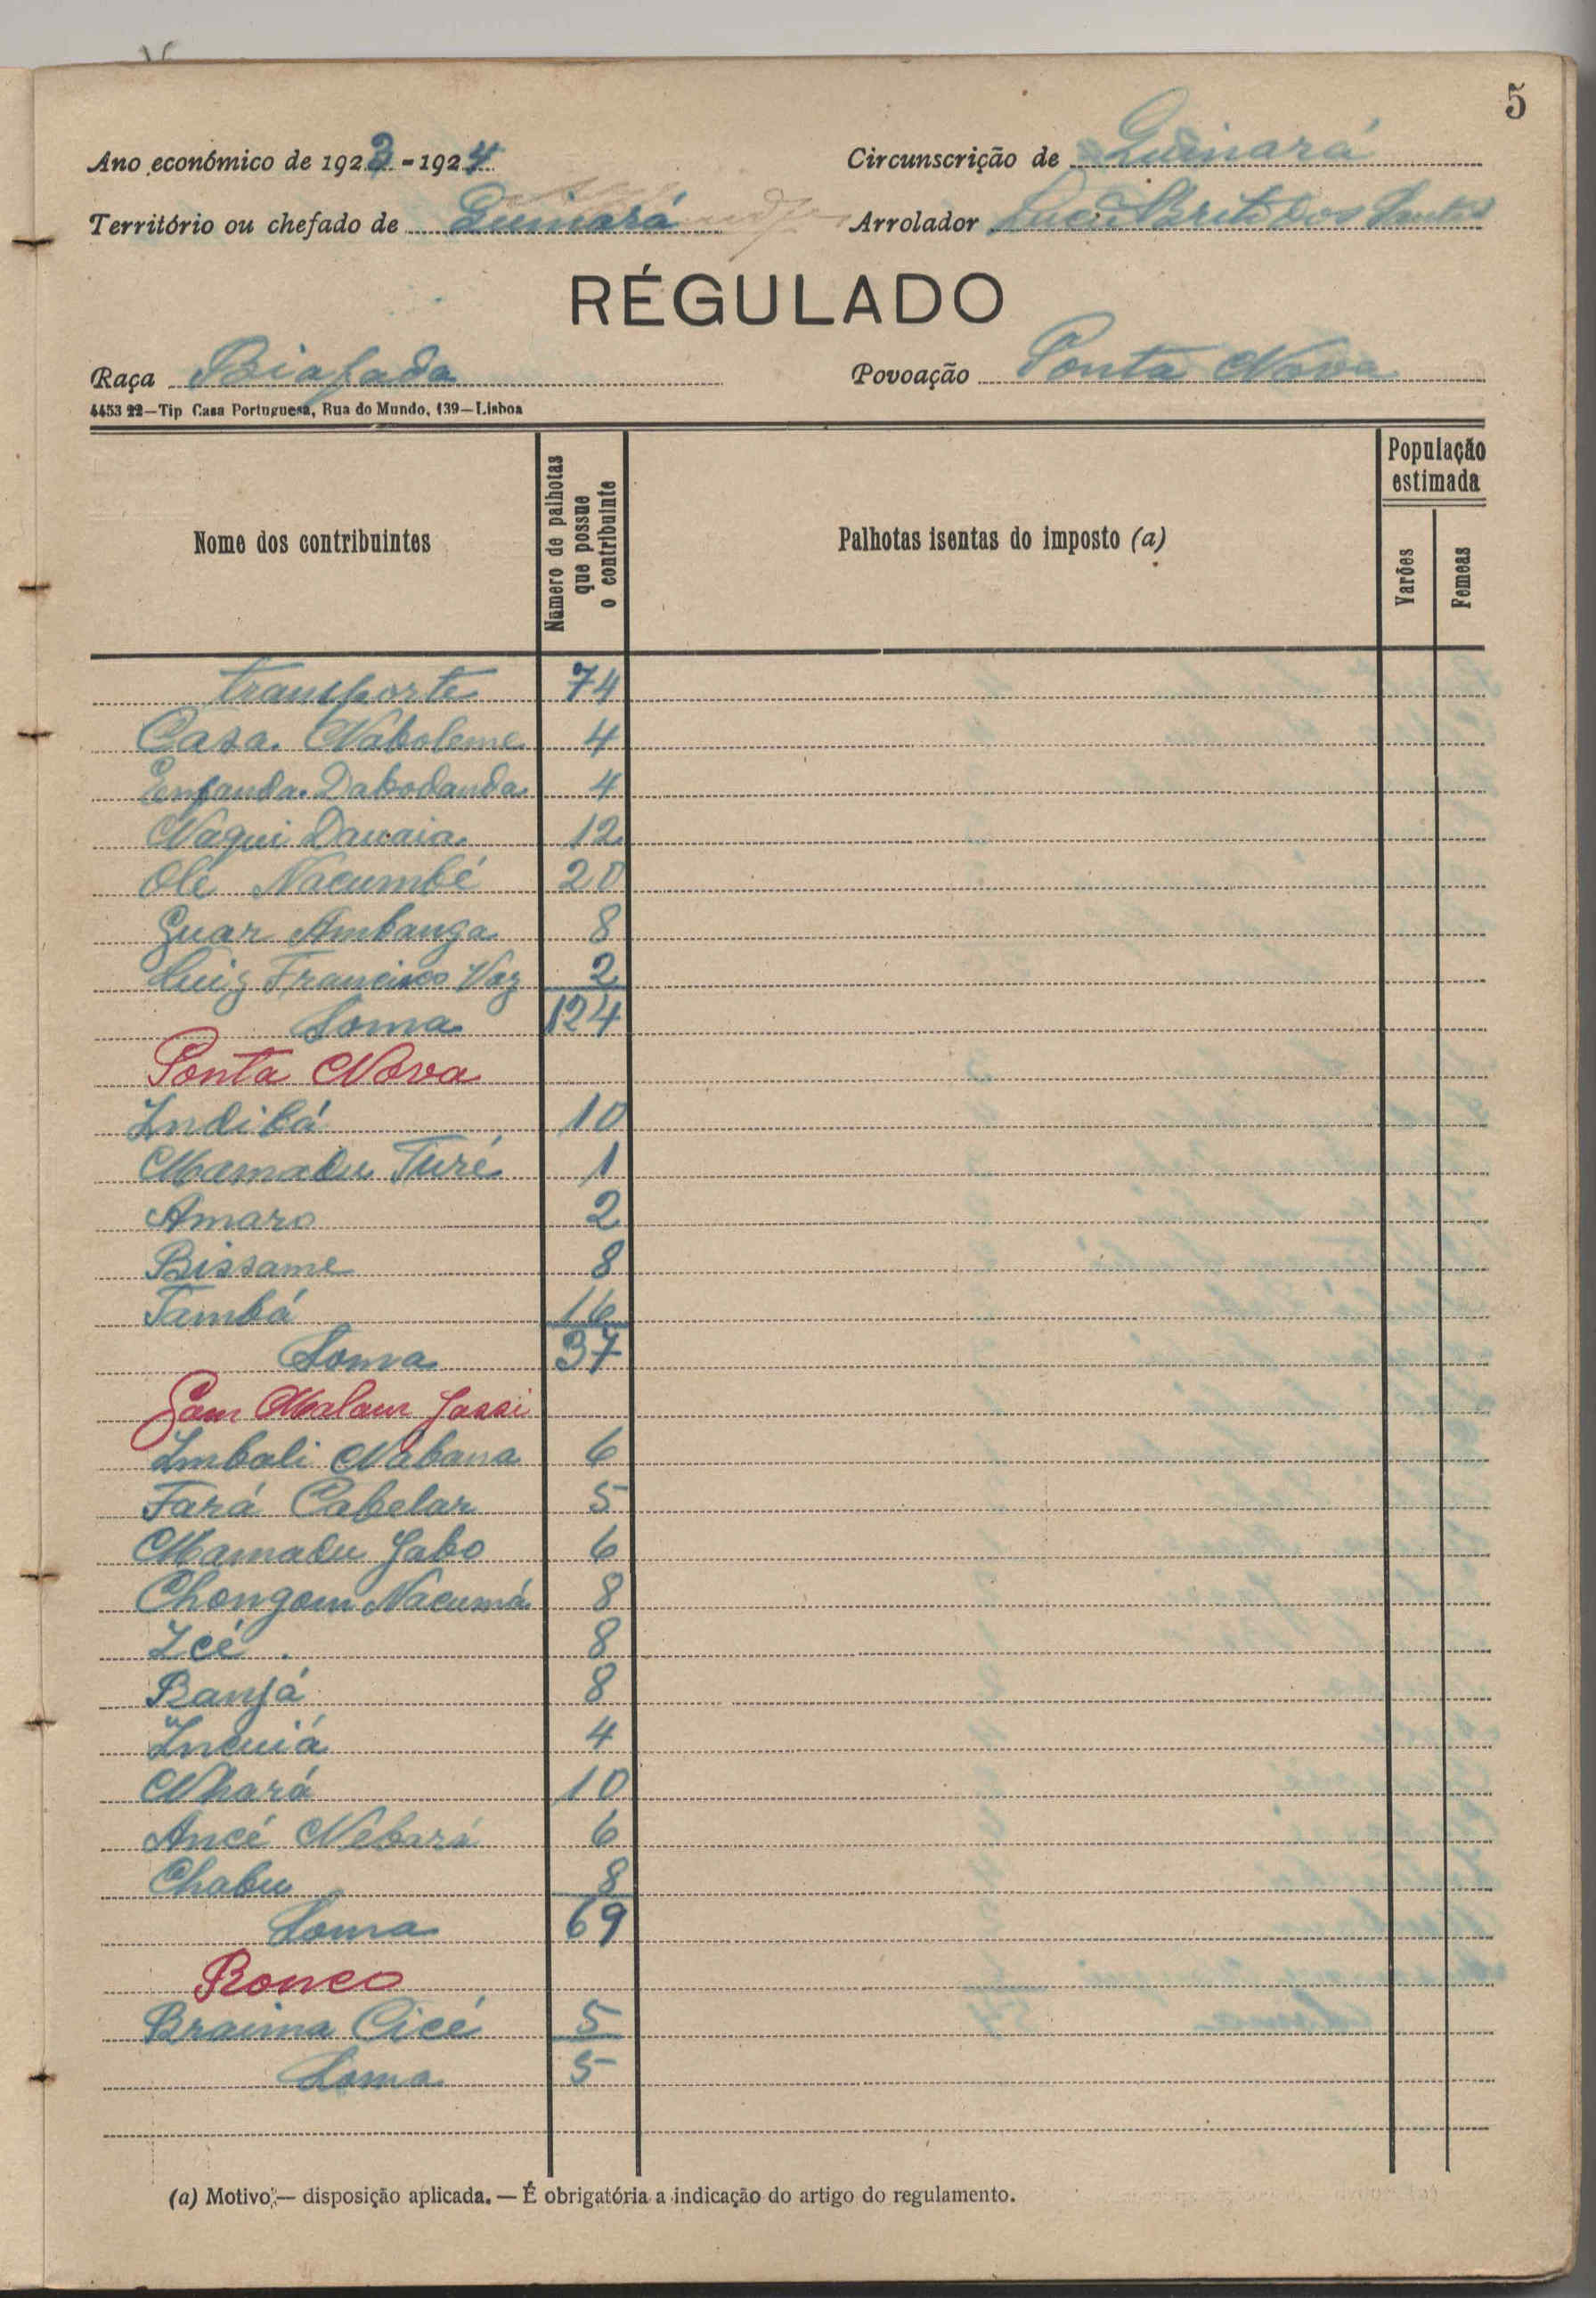 5
Ano económico de 1923-1924
Circunscrição de Guinará
Território ou chefado de Guinará
Arrolador Luci Brito dos Santos
RÉGULADO
Raça Biafada
Povoação Ponta Nova
4453 22—Tip Casa Portuguesa, Rua do Mundo, 139—Lisboa
Nome dos contribuintes
Número de palhotas que possue o contribuinte
Palhotas isentas do imposto (a)
População estimada
Varões
Femeas
transporte 74
Casa Naboleme 4
Enfanda Dabodanda 4
Naqui Dauaia 12
Olé Nacumbé 20
Guar Ambanga 8
Luiz Francisco Vaz 2
Soma 124
Ponta Nova
Indibá 10
Mamadu Turé 1
Amaro 2
Bissame 8
Tambá 16
Soma 37
Gam Malam Jassi
Imbali Nabana 6
Fará Cabelar 5
Mamadu Jabo 6
Chongom Nacumá 8
Icé 8
Banjá 8
Incuiá 4
Nhará 10
Ancé Nebará 6
Chabu 8
Soma 69
Ronco
Braima Cicé 5
Soma 5
(a) Motivo;— disposição aplicada. — É obrigatória a indicação do artigo do regulamento.